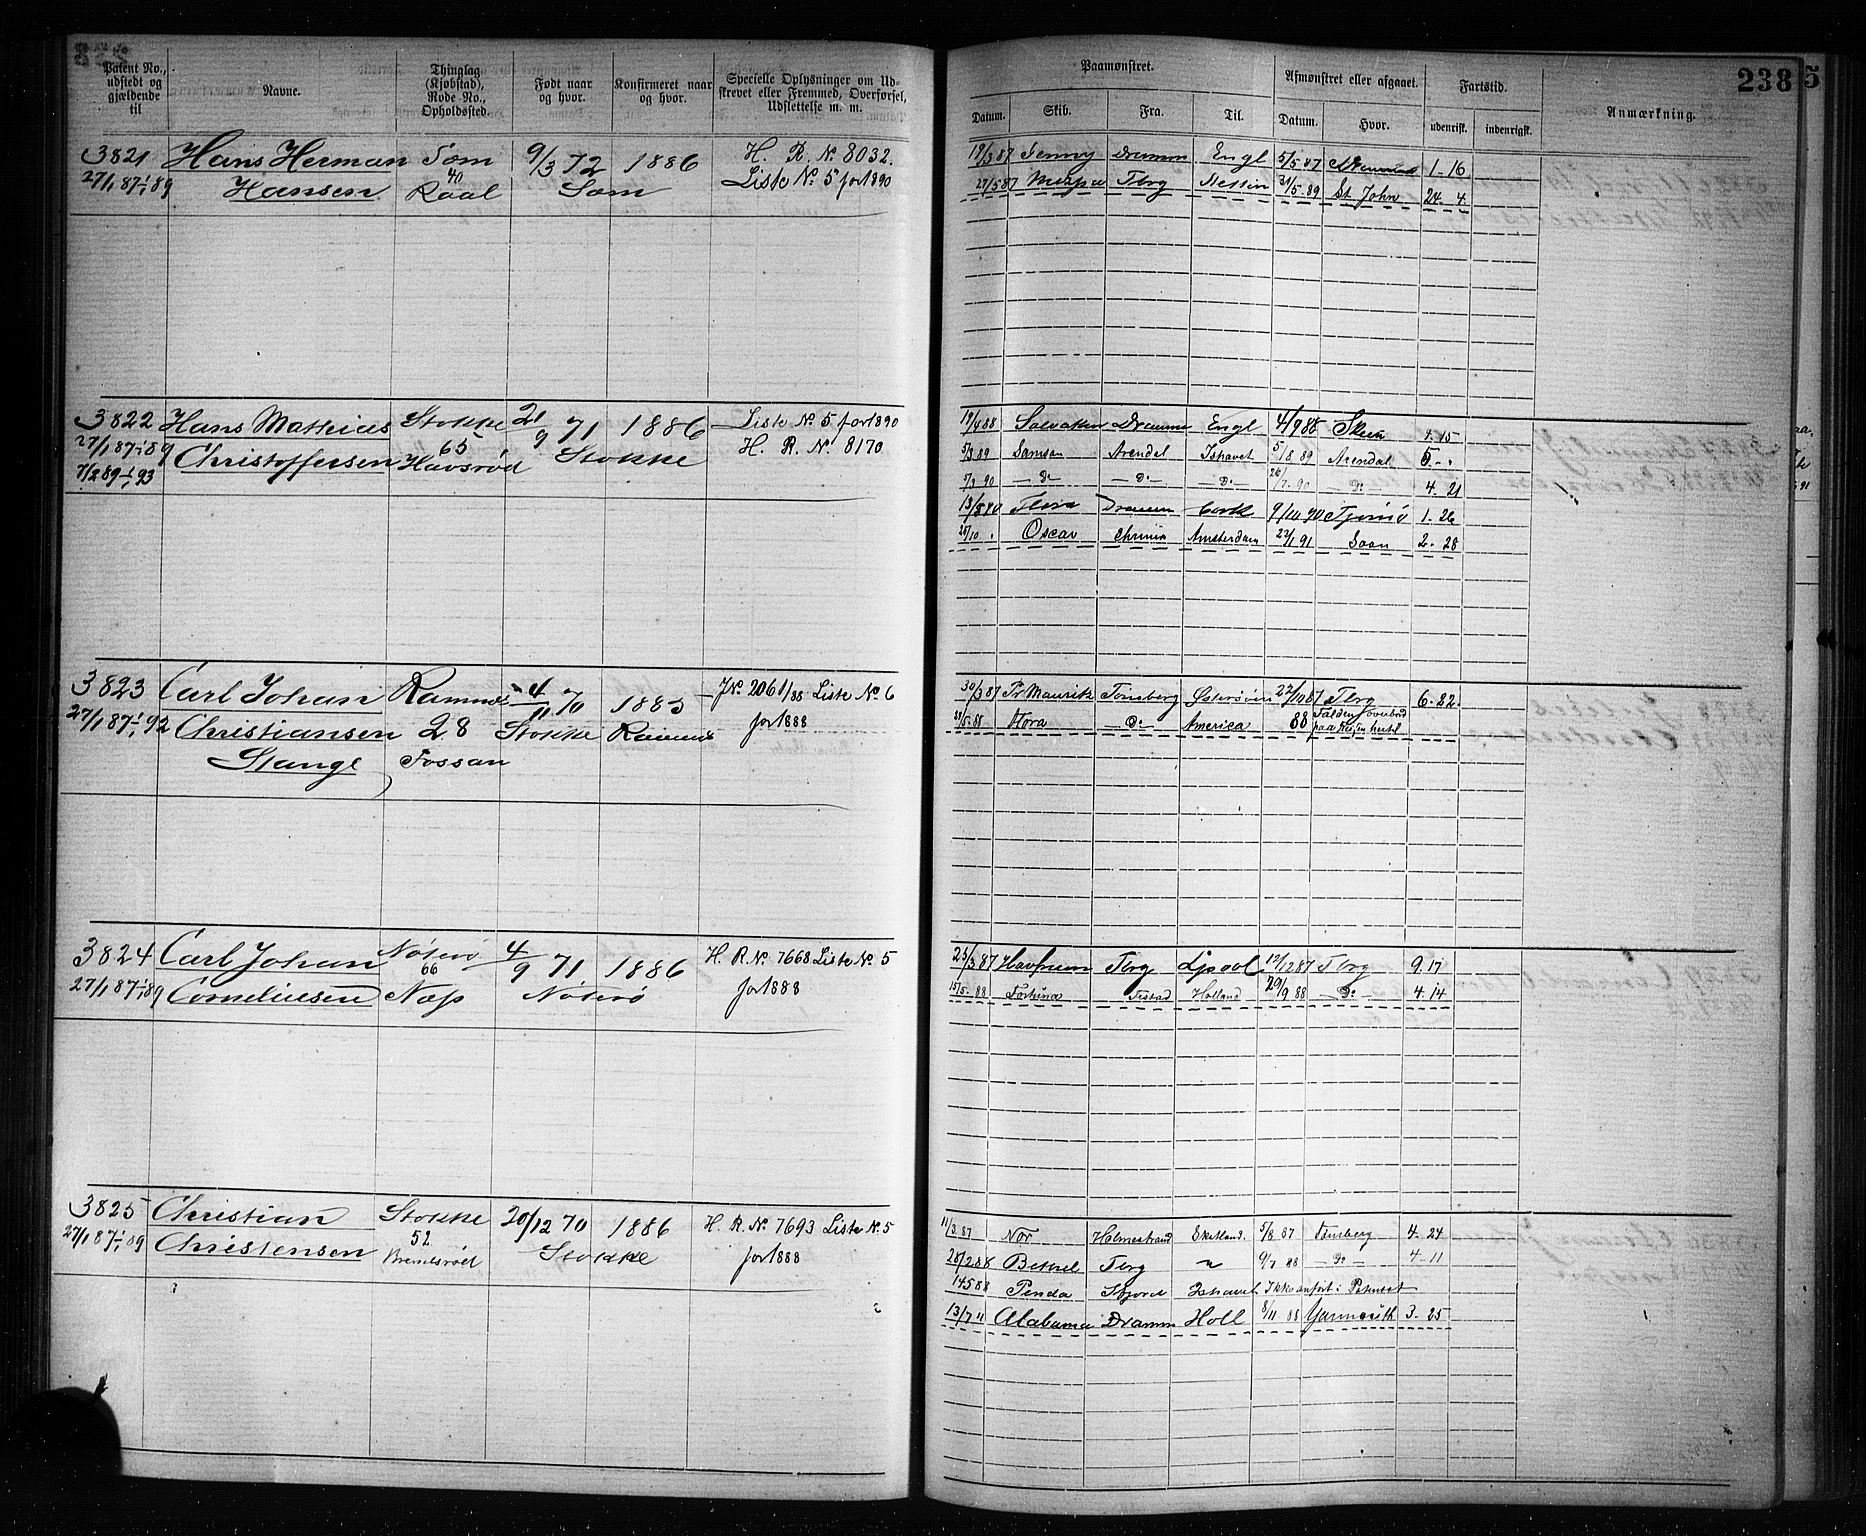 238
Patent No., udstedt og gjældende til
Navne.
Thinglag (Kjøbstad), Rode No., Opholdssted.
Født naar og hvor.
Konfirmeret naar og hvor.
Specielle Oplysninger om Udskrevet eller Fremmed, Overførsel, Udslettelse m. m.
Paamønstret.
Afmønstret eller afgaaet.
Fartstid.
Anmærkning.
Datum. Skib. Fra. Til. Datum. Hvor. udenrisk. indenrigsk.
3821 Hans Herman Sem 9/3 72 1886 H. R. No 8032.
27/1 87 1/1 89 Hansen 40 Raal Sem Liste No 5 for 1890
19/3 87 Jenny Dramm Engl 5/5 87 1-16
27/5 87 Mezpa Tbrg 31/5-89 St. John 24-4
3822 Hans Mathias Stokke 21/9 71 1886 Liste No 5 for 1890
27/1 87 1/1 89 Christoffersen 65 Havsrød Stokke H. R. No. 8170
7/2 89 1/1 93
19/4 88 Dramm Engl 4/9 88 4-15
5/3 89 Samson Arendal Ishavet 5/8 89 Arendal 5-"
5/3 90 — Do — — Do — — Do — 26/7 90 — Do — 4-21
13/8 90 Flora Dramm Cork 9/10 90 Tjømø 1-26
25/10 " Oscar Chrnia Amsterdam 22/1 91 2-28
3823 Carl Johan Ramnes 4/11 70 1885 JNo 2061/88 Liste No 6
27/1 87 1/1 92 Christiansen 28 Stokke Ramnes for 1888
Stange Fossan
30/3 87 Pr Maurits Tønsberg Østersøen 22/10 87 Tbrg 6-22
Flora — Do — America 88 Falden overbord
paa Reisen hertil
3824 Carl Johan Nøtterø 4/9 71 1886 H. R No. 7668 Liste No. 5
27/1 87 1/1 89 Corneliusen 66 Næs Nøtterø for 1888
23/3 87 Havfruen Tbrg Lpool 12/12 87 Tbrg 9-17
15/5-88 Fortuna Holland 29/9 88 — Do — 4-14
3825 Christian Stokke 20/12 70 1886 H. R. No. 7693 Liste No. 5
27/1 87 1/1 89 Christensen 52 Bremesrød Stokke for 1888
11/3 87 Nor Holmestrand Skotland 5/8 87 Tønsberg 4-24
28/2 88 Bethel Tbrg " 9/7 88 — Do — 4-11
14 5 88 Penda Ishavet Ikke anført i Patentet
13/7 " Alabama Dramm Holl 8/11 88 Yarmouth 3-25